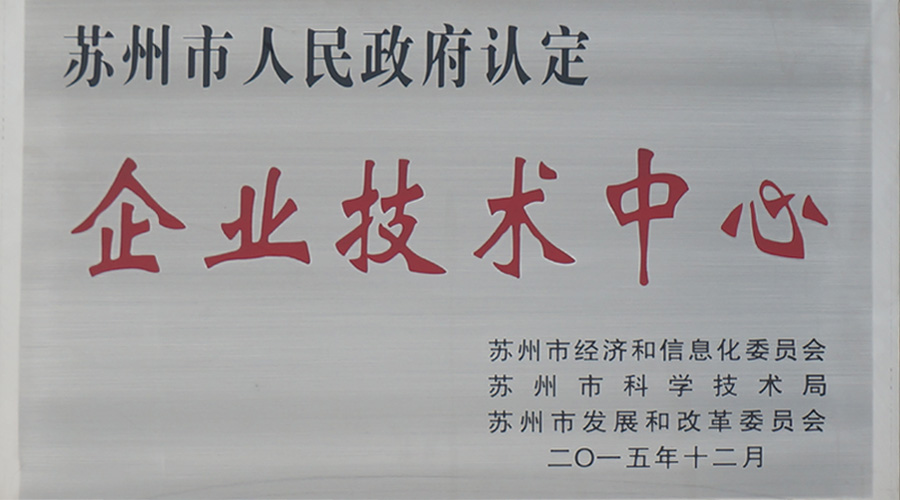 苏州市人民政府认定
企业技术中心
苏州市经济和信息化委员会
苏州市科学技术局
苏州市发展和改革委员会
二〇一五年十二月